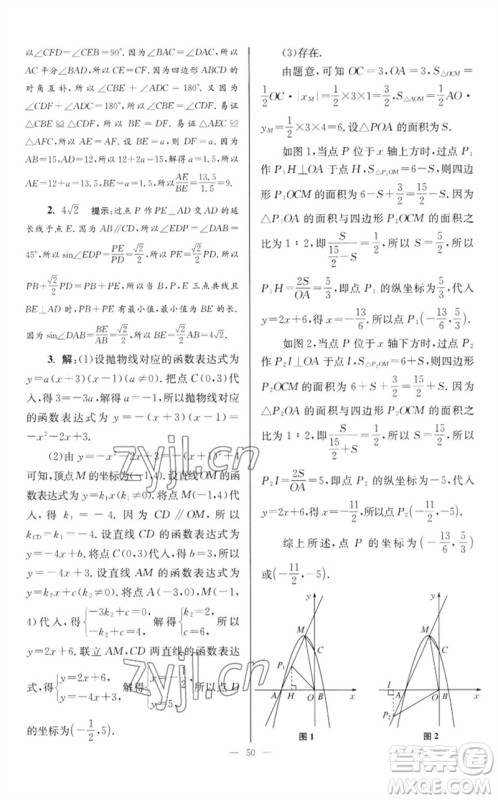 以∠CFD=∠CEB=90°. 因为∠BAC=∠DAC, 所以
AC平分∠BAD, 所以CE=CF. 因为四边形ABCD的
对角互补, 所以∠ABC+∠ADC=180°. 因为∠CDF+∠ADC=180°, 所以∠CBE=∠CDF. 易证
△CBE≌△CDF, 所以BE=DF. 易证△AEC≌
△AFC, 所以AE=AF. 设BE=a, 则DF=a. 因为
AE=AF, 所以12+a=13.5, 所以12+2a=15, 所以a=
1.5, 所以AE=12+a=13.5, 所以AE/BE=13.5/1.5=9.
2. 4√2 提示:过点P作PE⊥AD交AD的延
长线于点E. 因为AB∥CD, 所以∠EDP=∠DAB=
45°, 所以sin∠EDP=PE/PD=√2/2, 所以PE=√2/2PD, 所以
PB+√2/2PD=PB+PE, 所以当B, P, E三点共线且
BE⊥AD时, PB+PE有最小值, 最小值为BE的长.
因为sin∠DAB=BE/AB=√2/2, 所以BE=√2/2AB=4√2.
3. 解:(1)设抛物线对应的函数表达式为
y=a(x+3)(x-1)(a≠0). 把点C(0,3)代
入, 得3=-3a, 解得a=-1, 所以抛物线对
应的函数表达式为y=-(x+3)(x-1)=
-x²-2x+3.
(2)由y=-x²-2x+3=-(x+1)²+4
可知, 顶点M的坐标为(-1,4). 设直线OM的函
数表达式为y=k₁x(k₁≠0). 将点M(-1,4)
代入, 得k₁=-4. 因为CD∥OM, 所以
k_CD=k₁=-4, 所以直线CD的函数表达式为
y=-4x+3. 设直线AM的函数表达式为
y=k₂x+c(k₂≠0). 将点A(-3,0), M(-1,
4)代入, 得{-3k₂+c=0, -k₂+c=4, 解得{k₂=2, c=6, 所以
y=2x+6. 联立AM,CD两直线的函数表达
式, 得{y=2x+6, y=-4x+3, 解得{x=-1/2, y=5, 所以点D
的坐标为(-1/2,5).
(3)存在.
由题意, 可知OC=3, OA=3, S△OCM=
1/2OC·|x_M|=1/2×3×1=3/2, S△AOM=1/2AO·
y_M=1/2×3×4=6. 设△POA的面积为S.
如图1, 当点P位于x轴上方时, 过点P₁作
P₁H⊥OA于点H, S△P₁OM=6-S, 所以四边形
P₁OCM的面积为6-S+3/2=15/2-S. 因为
△P₁OA的面积与四边形P₁OCM的面积之比
为1∶2, 即S/(15/2-S)=1/2, 所以S=5/2, 所以
P₁H=2S/OA=5/3, 即点P₁的纵坐标为5/3, 代入
y=2x+6, 得P₁(-13/6,5/3).
如图2, 当点P位于x轴下方时, 过点P₂作
P₂I⊥OA于点I, S△P₂OM=6+S, 所以四边形
P₂OCM的面积为6+S+3/2=15/2+S. 因为
△P₂OA的面积与四边形P₂OCM的面积之比
为1∶2, 即S/(15/2+S)=1/2, 所以S=15/2, 所以
P₂I=2S/OA=5, 即点P₂的纵坐标为-5, 代入
y=2x+6, 得P₂(-11/2,-5).
综上所述, 点P的坐标为(-13/6,5/3)
或(-11/2,-5).
y M C P₁ A H O B x
图1
y M C I A O B x P₂
图2
50
zyjl.cn
作业精灵
答案圈
MXQE.COM